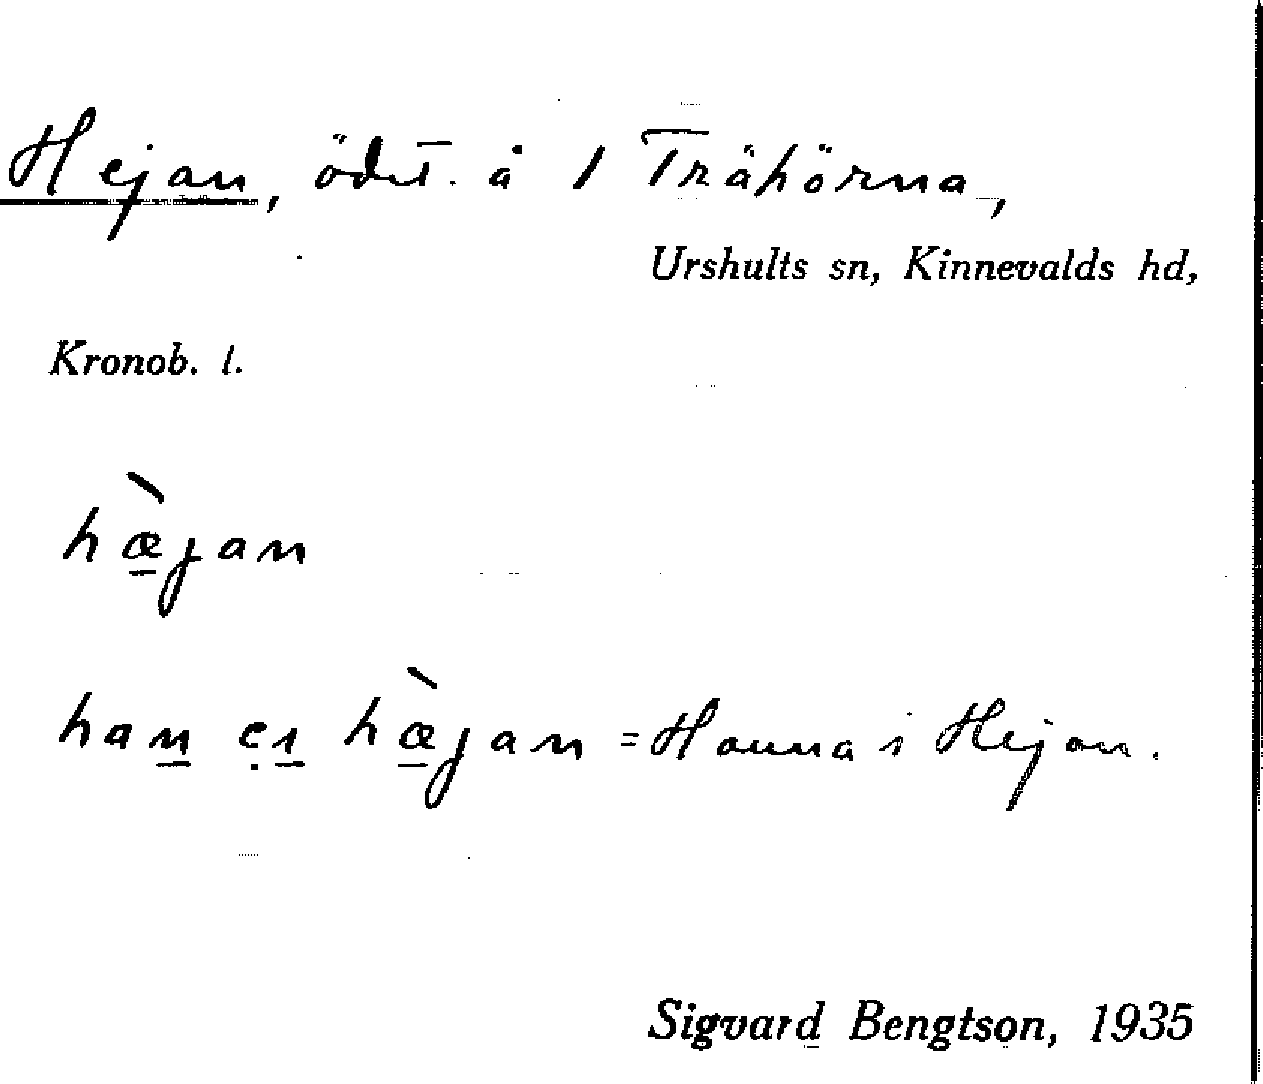 Hejan, ödet. å 1 Trähörna,
Urshults sn, Kinnevalds hd,
Kronob. l.
hæ̀jan
han hæ̀jan = Hanna i Hejan.
Sigvard Bengtson, 1935